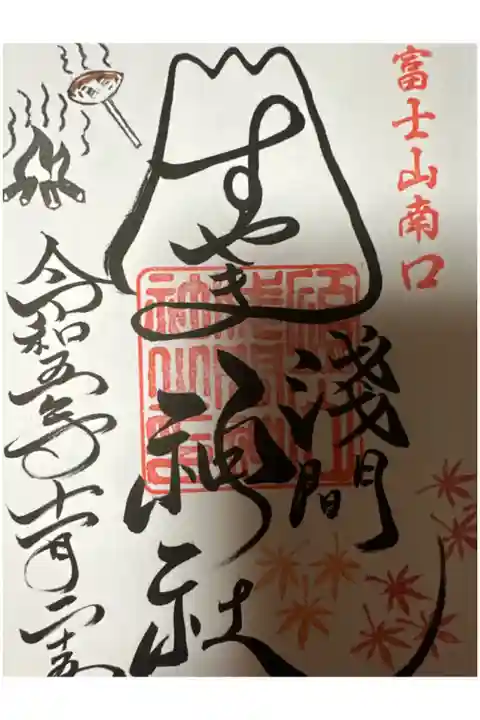 富士山南口
すやま
淺間
神社
令和五年十一月二十五